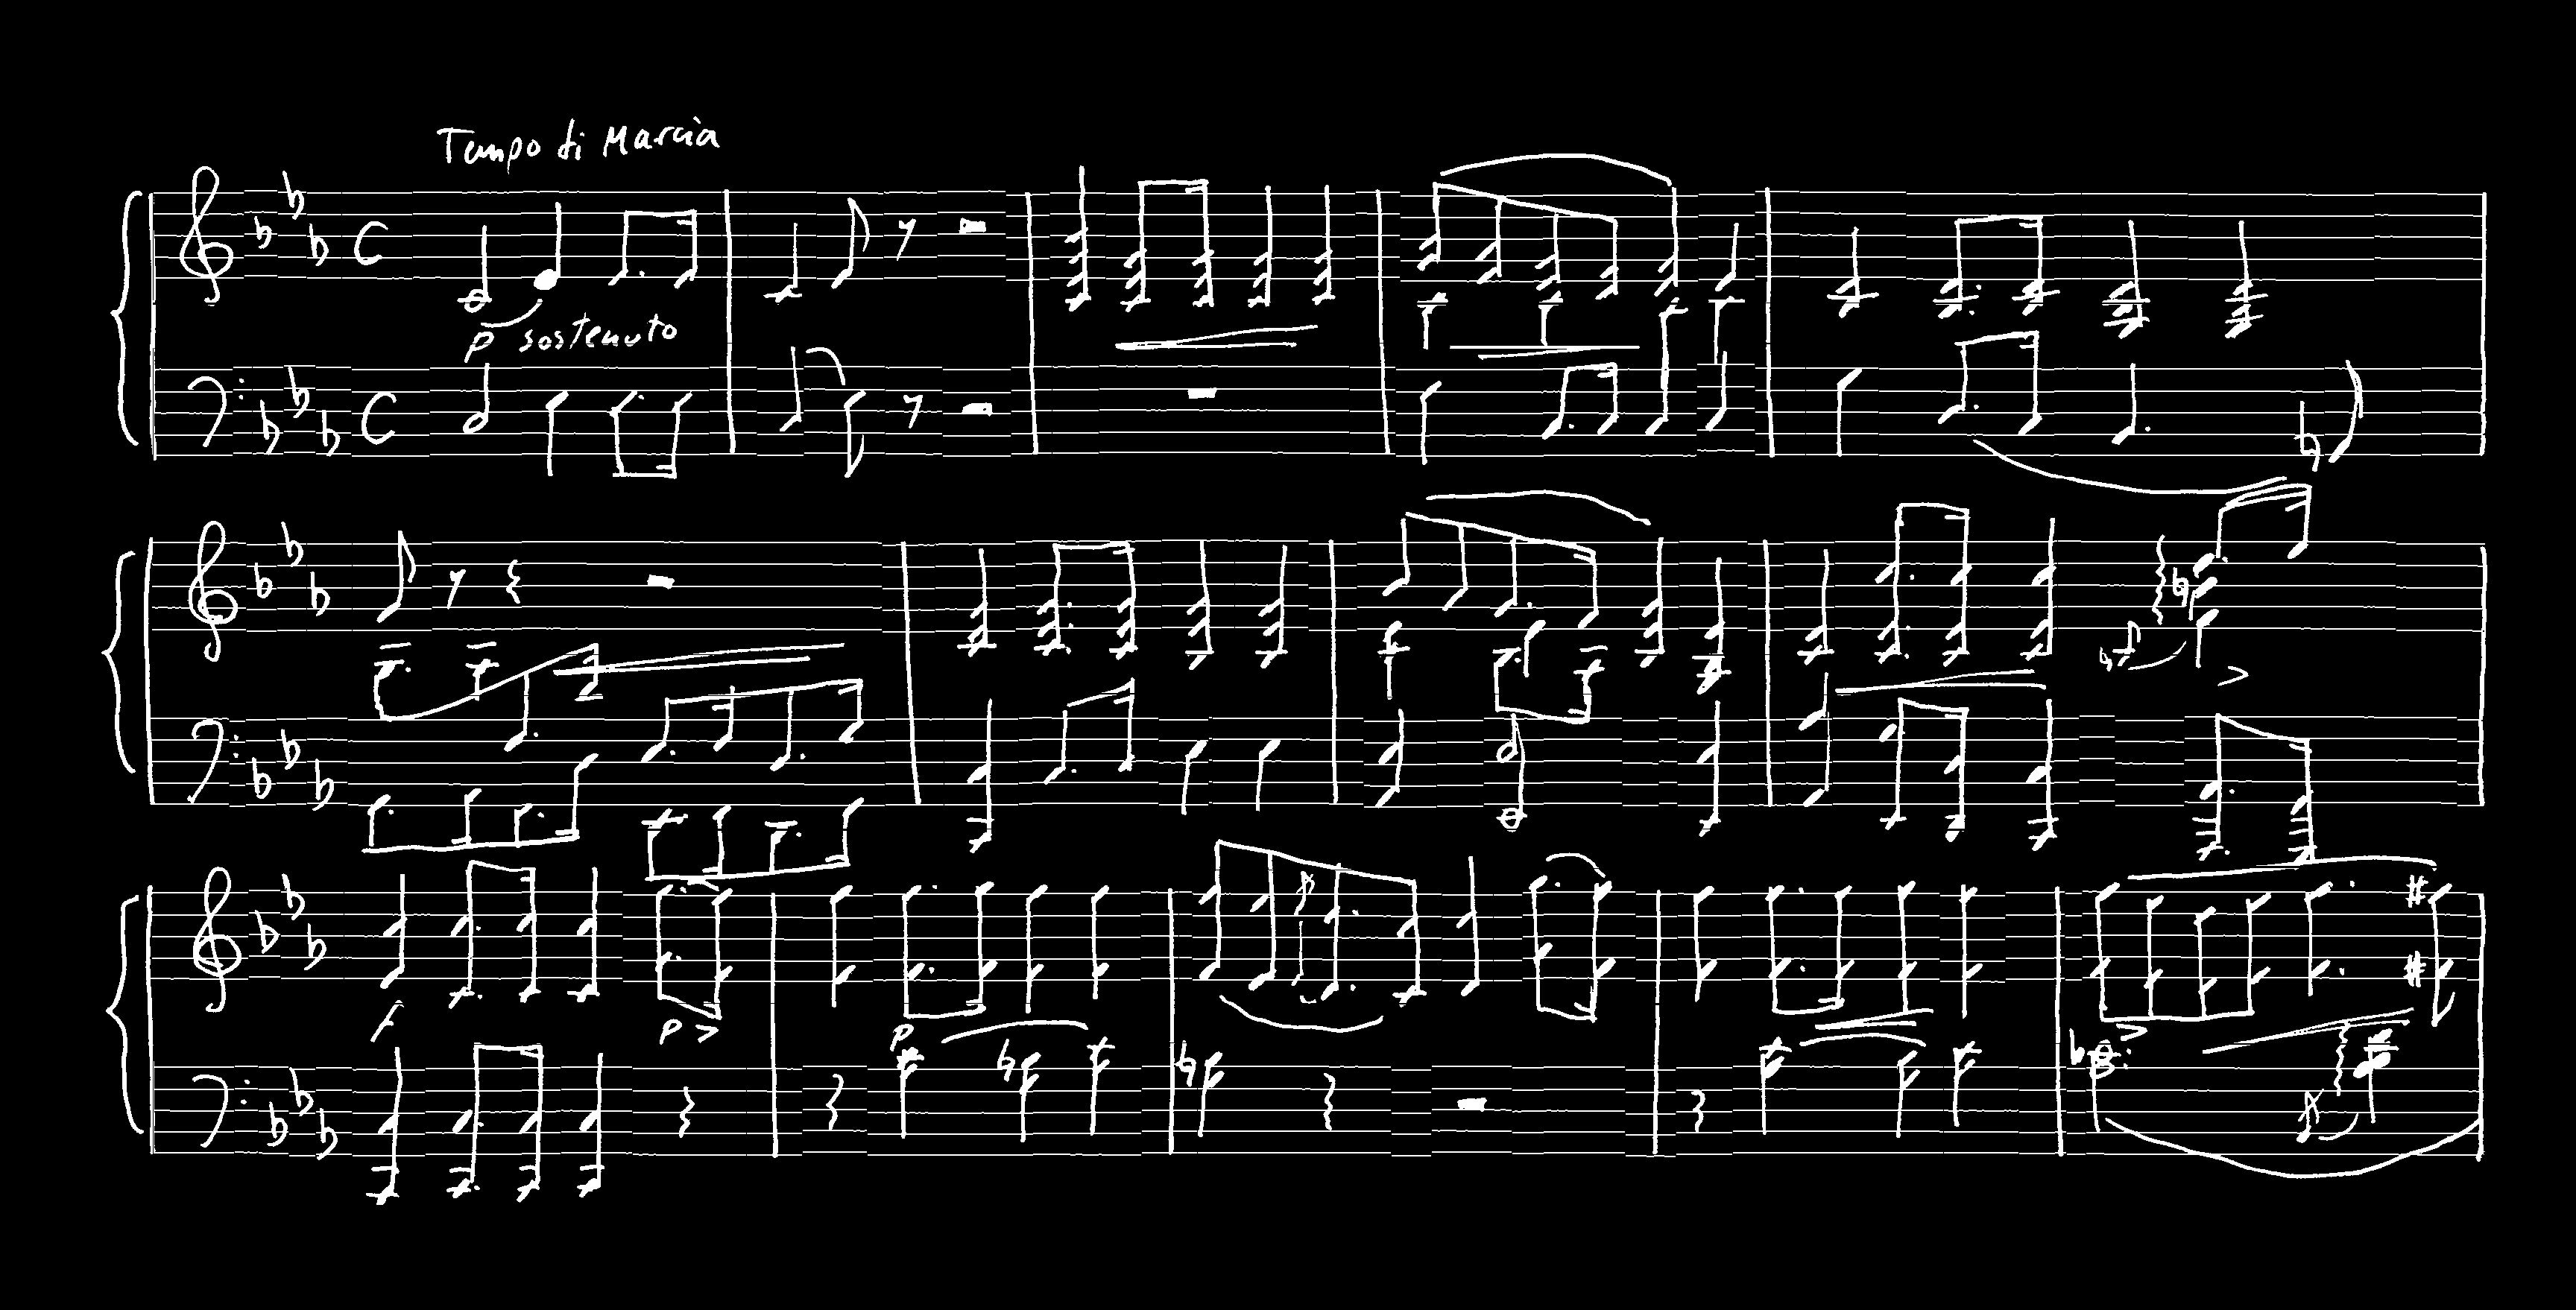 Tempo di Marcia
p sostenuto
f p
p